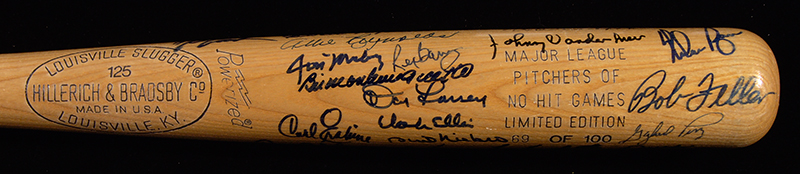 LOUISVILLE SLUGGER®
125
HILLERICH & BRADSBY Cº
MADE IN U.S.A.
LOUISVILLE, KY.
Powerized
Allie Reynolds
Johnny Vander Meer
Nolan Ryan
Rex Barney
MAJOR LEAGUE
PITCHERS OF
NO HIT GAMES
LIMITED EDITION
69 OF 100
Don Larsen
Bob Feller
Carl Erskine
Dock Ellis
Gaylord Perry